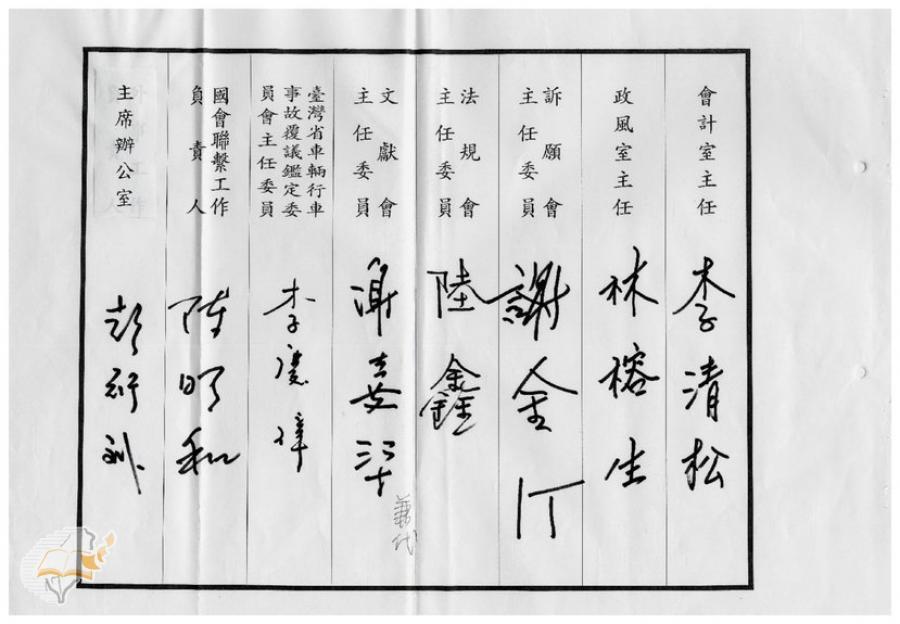 會計室主任
李清松
政風室主任
林榕生
訴願會
主任委員
謝金汀
法規會
主任委員
陸鑫
文獻會
主任委員
謝嘉梁
兼代
臺灣省車輛行車
事故覆議鑑定委
員會主任委員
李慶
國會聯繫工作
負責人
陳明和
主席辦公室
彭